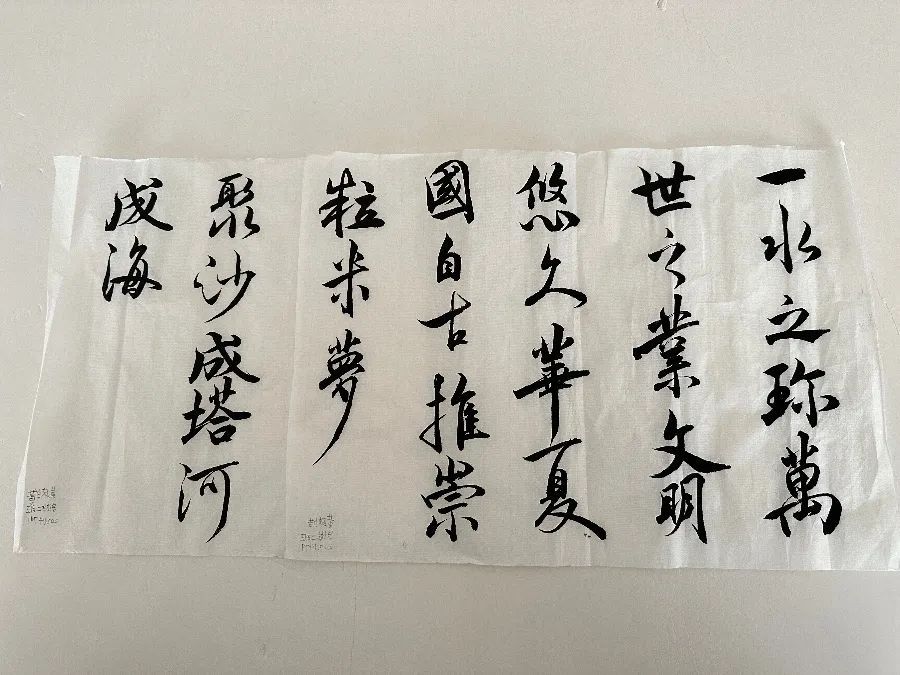 一水之珎萬
世之業文明
悠久華夏
國自古推崇
粒米夢
聚沙成塔河
成海